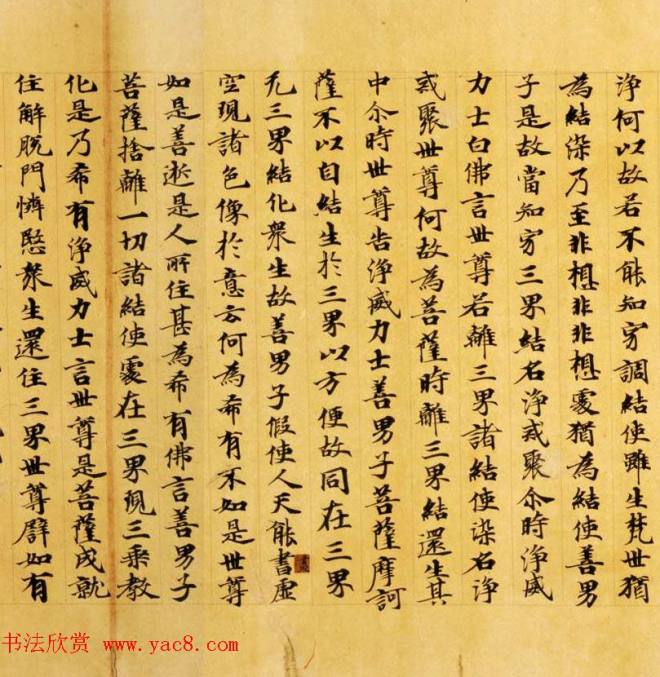 淨何以故若不能知穿調結使雖生梵世猶
為結染乃至非想非非想處猶為結使善男
子是故當知穿三界結名淨戒聚尒時淨威
力士白佛言世尊若離三界諸結使染名淨
戒聚世尊何故為菩薩時離三界結還生其
中尒時世尊告淨威力士善男子菩薩摩訶
薩不以自結生於三界以方便故同在三界
无三界結化衆生故善男子假使人天能書虛
空現諸色像於意云何為希有不如是世尊
如是善逝是人所住甚為希有佛言善男子
菩薩捨離一切諸結使處在三界現三乘教
化是乃希有淨威力士言世尊是菩薩成就
住解脫門憐愍衆生還住三界世尊譬如有
书法欣赏 www.yac8.com